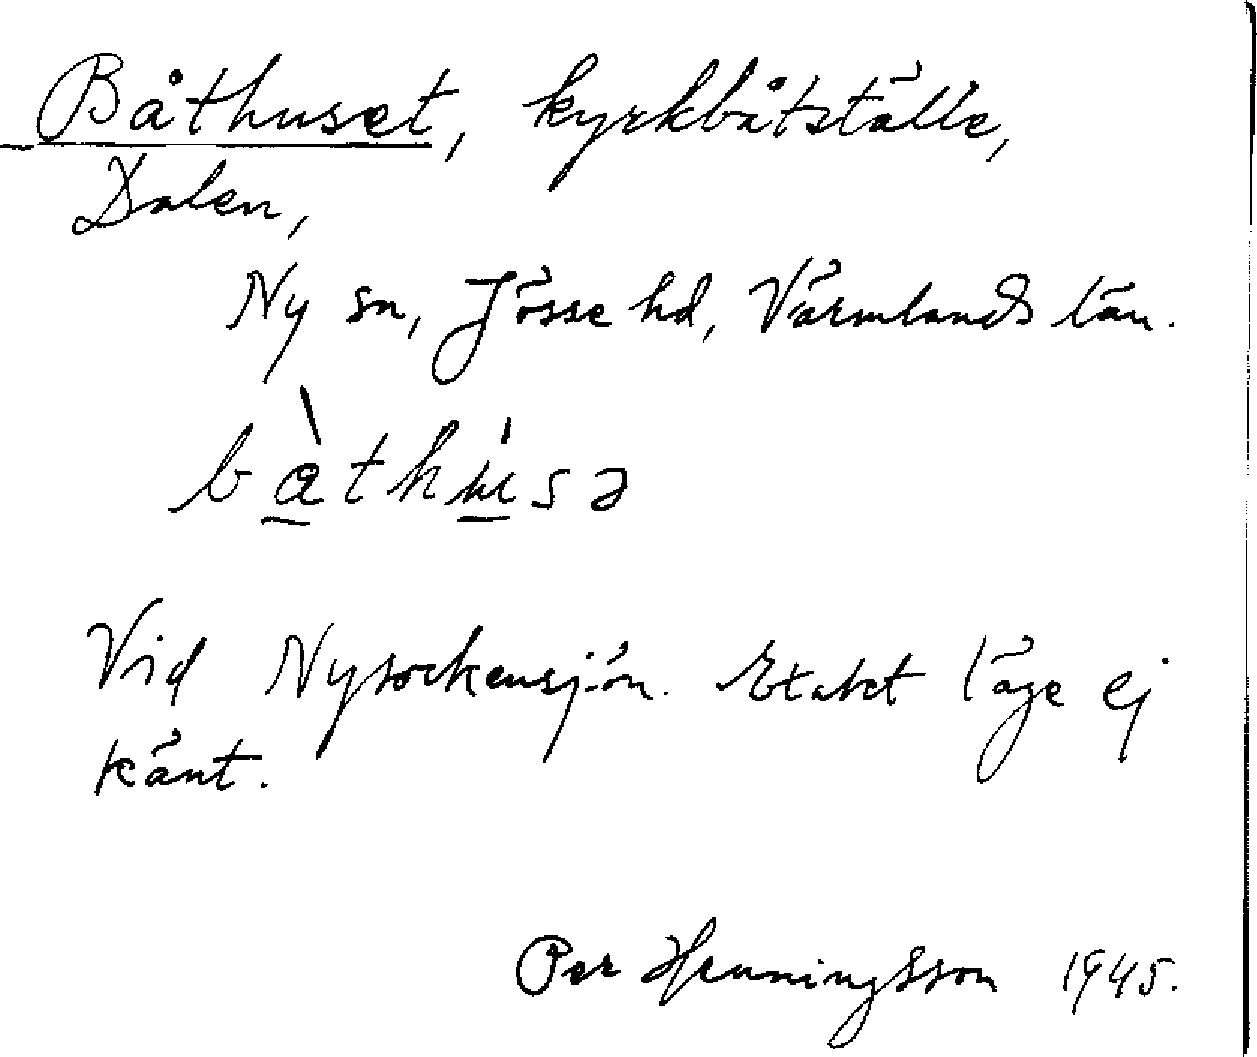 Båthuset, kyrkbåtställe,
Dalen,
Ny sn, Jösse hd, Värmlands län.
bàthu̍sə
Vid Nysockensjön. Exakt läge ej
känt.
Per Henningsson 1945.